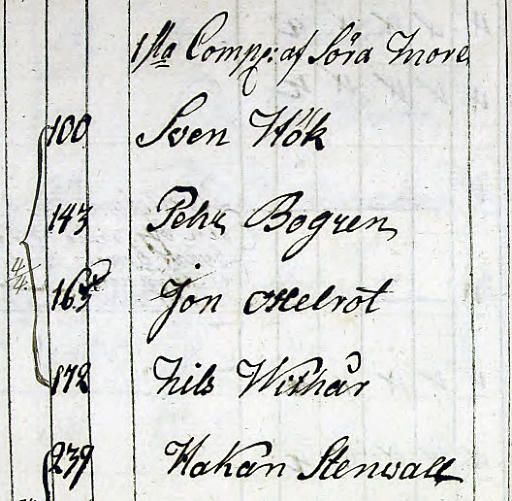 1sta Comp: af Söra Möre
100 Sven Hök
143 Pehr Bogren
163 Jon Melrot
172 Nils Withår
239 Hakan Stenwall